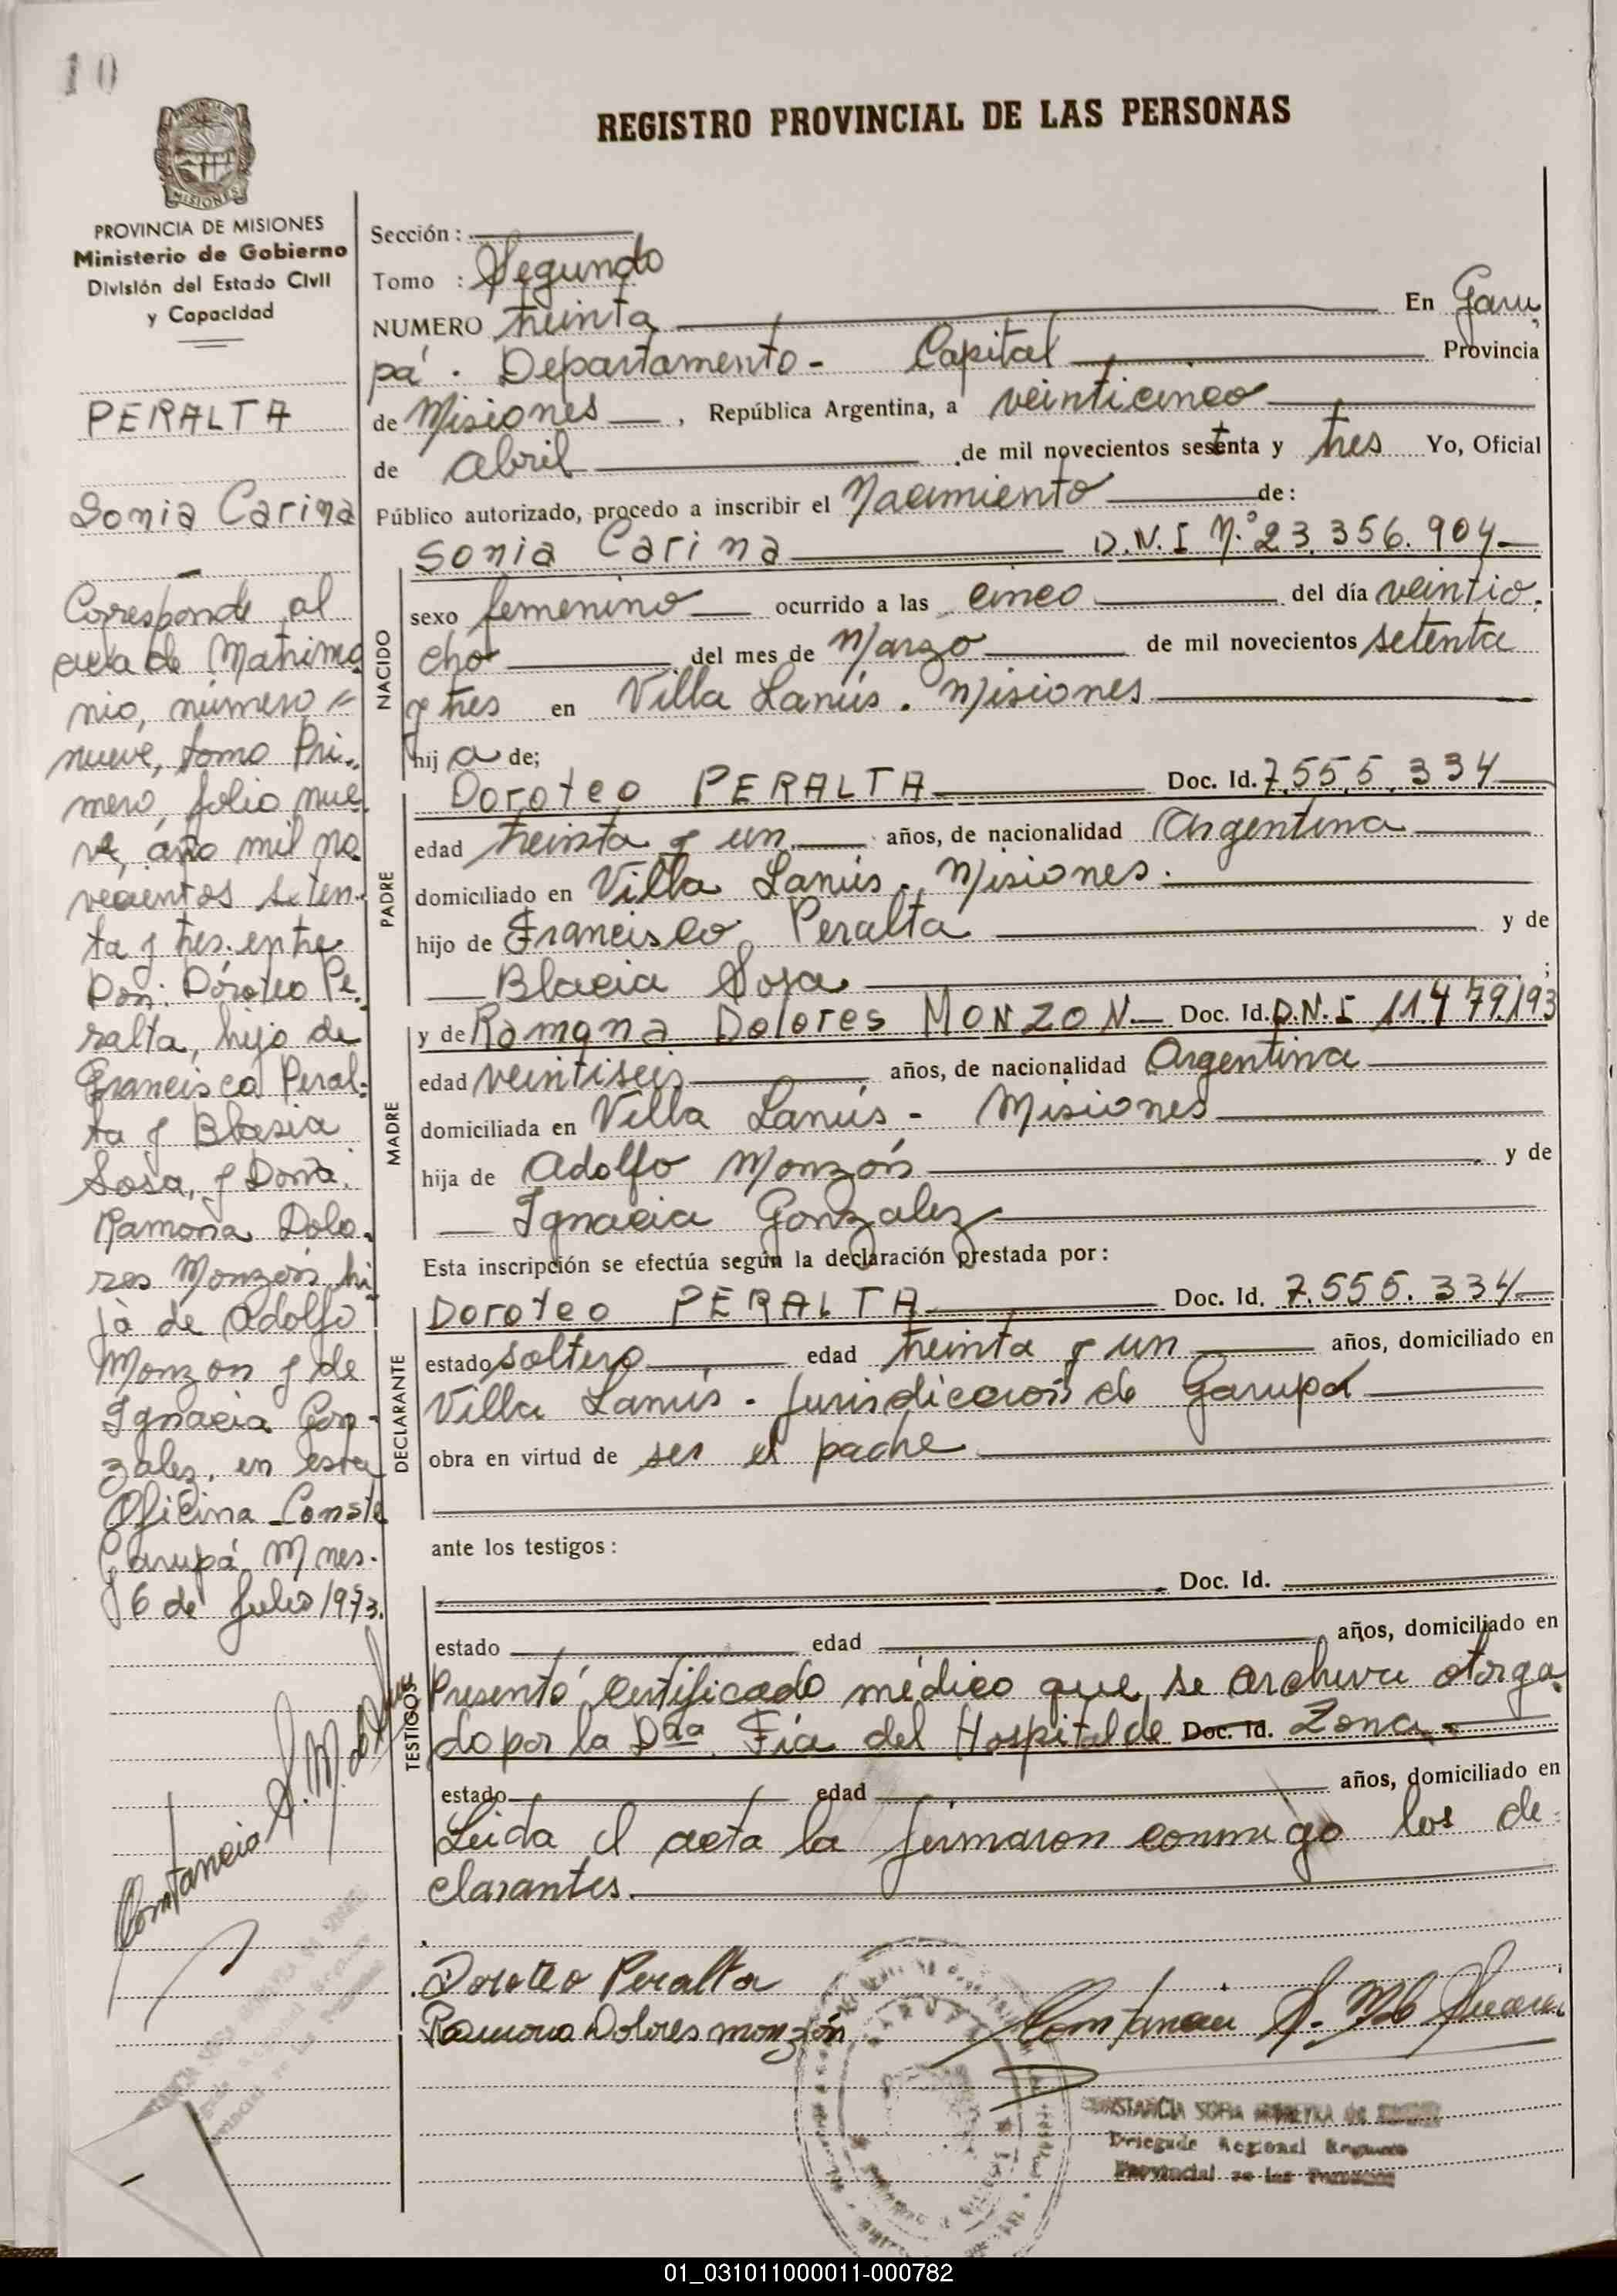 10
REGISTRO PROVINCIAL DE LAS PERSONAS
MISIONES
PROVINCIA DE MISIONES
Ministerio de Gobierno
División del Estado Civil
y Capacidad
PERALTA
Sonia Carina
Corresponde al
acta de Matrimo
nio, número
nueve, tomo Pri-
mero, folio nue-
ve, año mil no
vecientos seten-
ta y tres. entre
Don: Doroteo Pe-
ralta, hijo de
Francisco Peral-
ta y Blasia
Sosa, y Doña:
Ramona Dolo-
res Monzón hi
ja de Adolfo
Monzon y de
Ignacia Gon-
zalez, en esta
Oficina. Conste
Garupá Mnes.
6 de Julio 1973.
Constancia S. M. de
Sección :
Tomo : Segundo
NUMERO treinta En Garu
pá . Departamento - Capital Provincia
de Misiones , República Argentina, a veinticinco
de abril de mil novecientos setenta y tres Yo, Oficial
Público autorizado, procedo a inscribir el Nacimiento de:
NACIDO
Sonia Carina D.N.I Nº 23.356.904
sexo femenino ocurrido a las cinco del día veintio-
cho del mes de Marzo de mil novecientos setenta
y tres en Villa Lanús . Misiones
hij a de;
PADRE
Doroteo PERALTA Doc. Id. 7.555.334
edad treinta y un años, de nacionalidad Argentina
domiciliado en Villa Lanús . Misiones .
hijo de Francisco Peralta y de
Blacia Sosa ;
MADRE
y de Ramona Dolores MONZON Doc. Id. D.N.I 11.479.193
edad veintiseis años, de nacionalidad Argentina
domiciliada en Villa Lanús - Misiones
hija de Adolfo Monzón y de
Ignacia Gonzalez
Esta inscripción se efectúa según la declaración prestada por :
DECLARANTE
Doroteo PERALTA Doc. Id. 7.555.334
estado soltero edad treinta y un años, domiciliado en
Villa Lanús - Jurisdicción de Garupá
obra en virtud de ser el padre
ante los testigos :
TESTIGOS
Doc. Id.
estado edad años, domiciliado en
Presentó certificado médico que se archiva otorga
do por la Dra. Fia del Hospital de Doc. Id. Zona.-
estado edad años, domiciliado en
Leida el acta la firmaron conmigo los de-
clarantes.
Doroteo Peralta
Ramona Dolores monzón
Constancia S. M de
CONSTANCIA SOFIA
Delegada Regional Registro
Provincial de las Personas
01_031011000011-000782